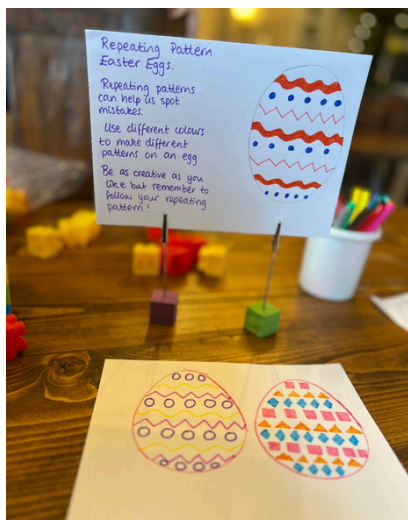 Repeating Pattern
Easter Eggs.
Repeating patterns
can help us spot
mistakes.
Use different colours
to make different
patterns on an egg
Be as creative as you
like but remember to
follow your repeating
pattern!